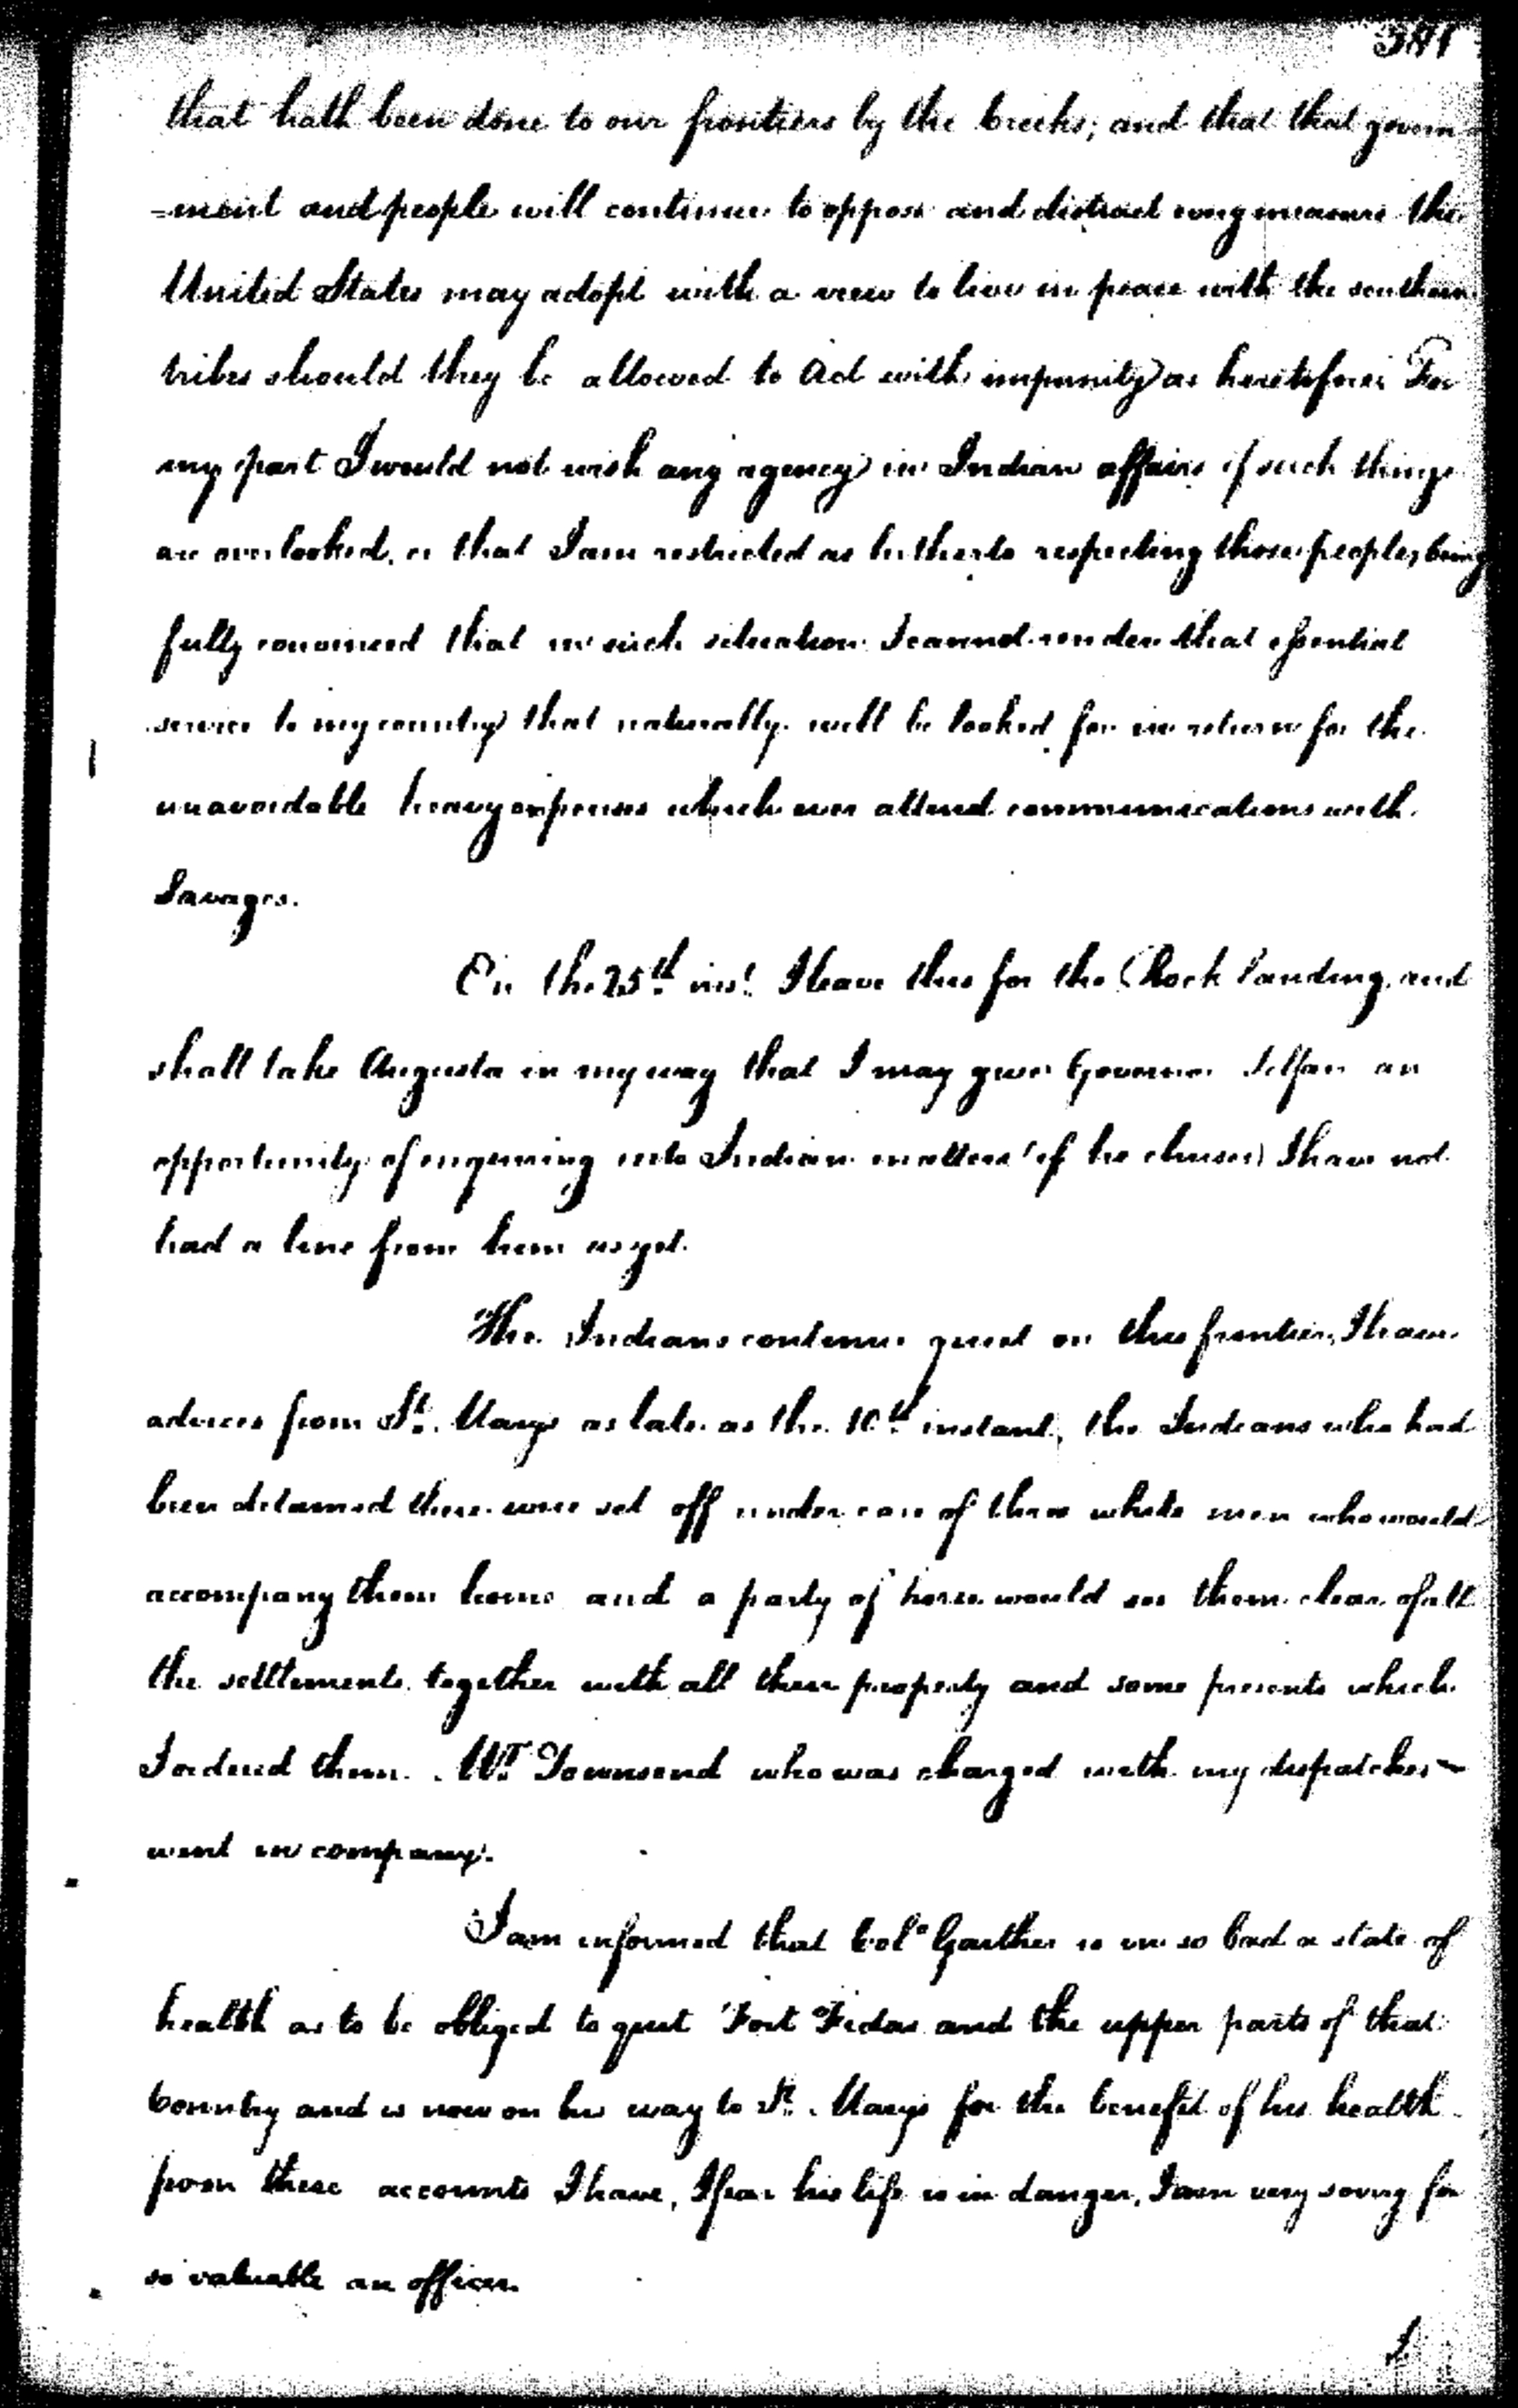 381
that hath been done to our frontiers by the Creeks; and that that govern
=ment and people will continue to oppose and distract every measure the
United States may adopt with a view to live in peace with the southern
tribes should they be allowed to act with impunity as heretofore. For
my part I would not wish any agency in Indian affairs if such things
are overlooked, or that I am restricted as hitherto respecting those people, being
fully convinced that in such situation I cannot render that essential
service to my country that naturally will be looked for in return for the
unavoidable heavy expenses which ever attend communications with
Savages.
On the 25th inst. I leave this for the Rock landing, and
shall take Augusta in my way that I may give Governor Telfair an
opportunity of enquiring into Indian matters (if he chuses) I have not
had a line from him as yet.
The Indians continue quiet on this frontier, I have
advices from St. Marys as late as the 10th instant, the Indians who had
been detained there were set off under care of three white men who would
accompany them home and a party of horse would see them clear of all
the settlements together with all their property and some presents which
I ordered them. Mr. Townsend who was charged with my dispatches
went in company.
I am informed that Colo. Gaither is in so bad a state of
health as to be obliged to quit Fort Fidus and the upper parts of that
Country and is now on his way to St. Marys for the benefit of his health
from these accounts I have, I fear his life is in danger, I am very sorry for
so valuable an officer.
I